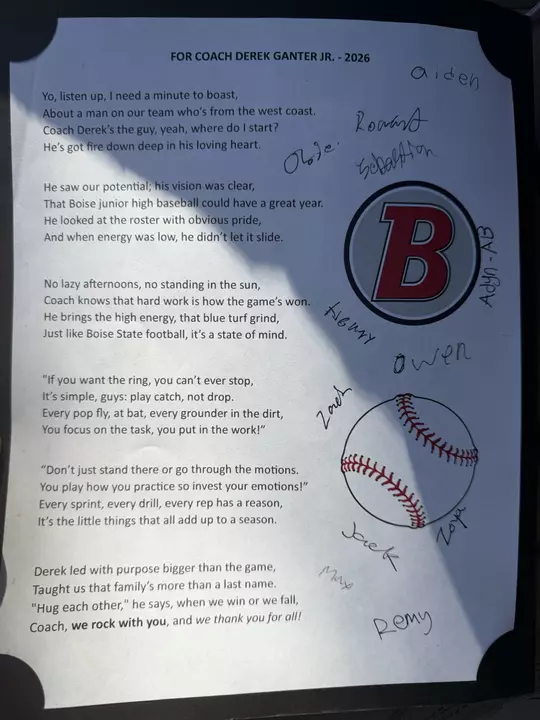 FOR COACH DEREK GANTER JR. - 2026
aiden
Yo, listen up, I need a minute to boast,
About a man on our team who's from the west coast.
Coach Derek's the guy, yeah, where do I start?
He's got fire down deep in his loving heart.
Sebastian
He saw our potential; his vision was clear,
That Boise junior high baseball could have a great year.
He looked at the roster with obvious pride,
And when energy was low, he didn't let it slide.
B
Adyn-AB
No lazy afternoons, no standing in the sun,
Coach knows that hard work is how the game's won.
He brings the high energy, that blue turf grind,
Just like Boise State football, it's a state of mind.
Henry
Owen
"If you want the ring, you can't ever stop,
It's simple, guys: play catch, not drop.
Every pop fly, at bat, every grounder in the dirt,
You focus on the task, you put in the work!"
Zach
"Don't just stand there or go through the motions.
You play how you practice so invest your emotions!"
Every sprint, every drill, every rep has a reason,
It's the little things that all add up to a season.
Zoya
Jack
Derek led with purpose bigger than the game,
Taught us that family's more than a last name.
"Hug each other," he says, when we win or we fall,
Coach, we rock with you, and we thank you for all!
Max
Remy